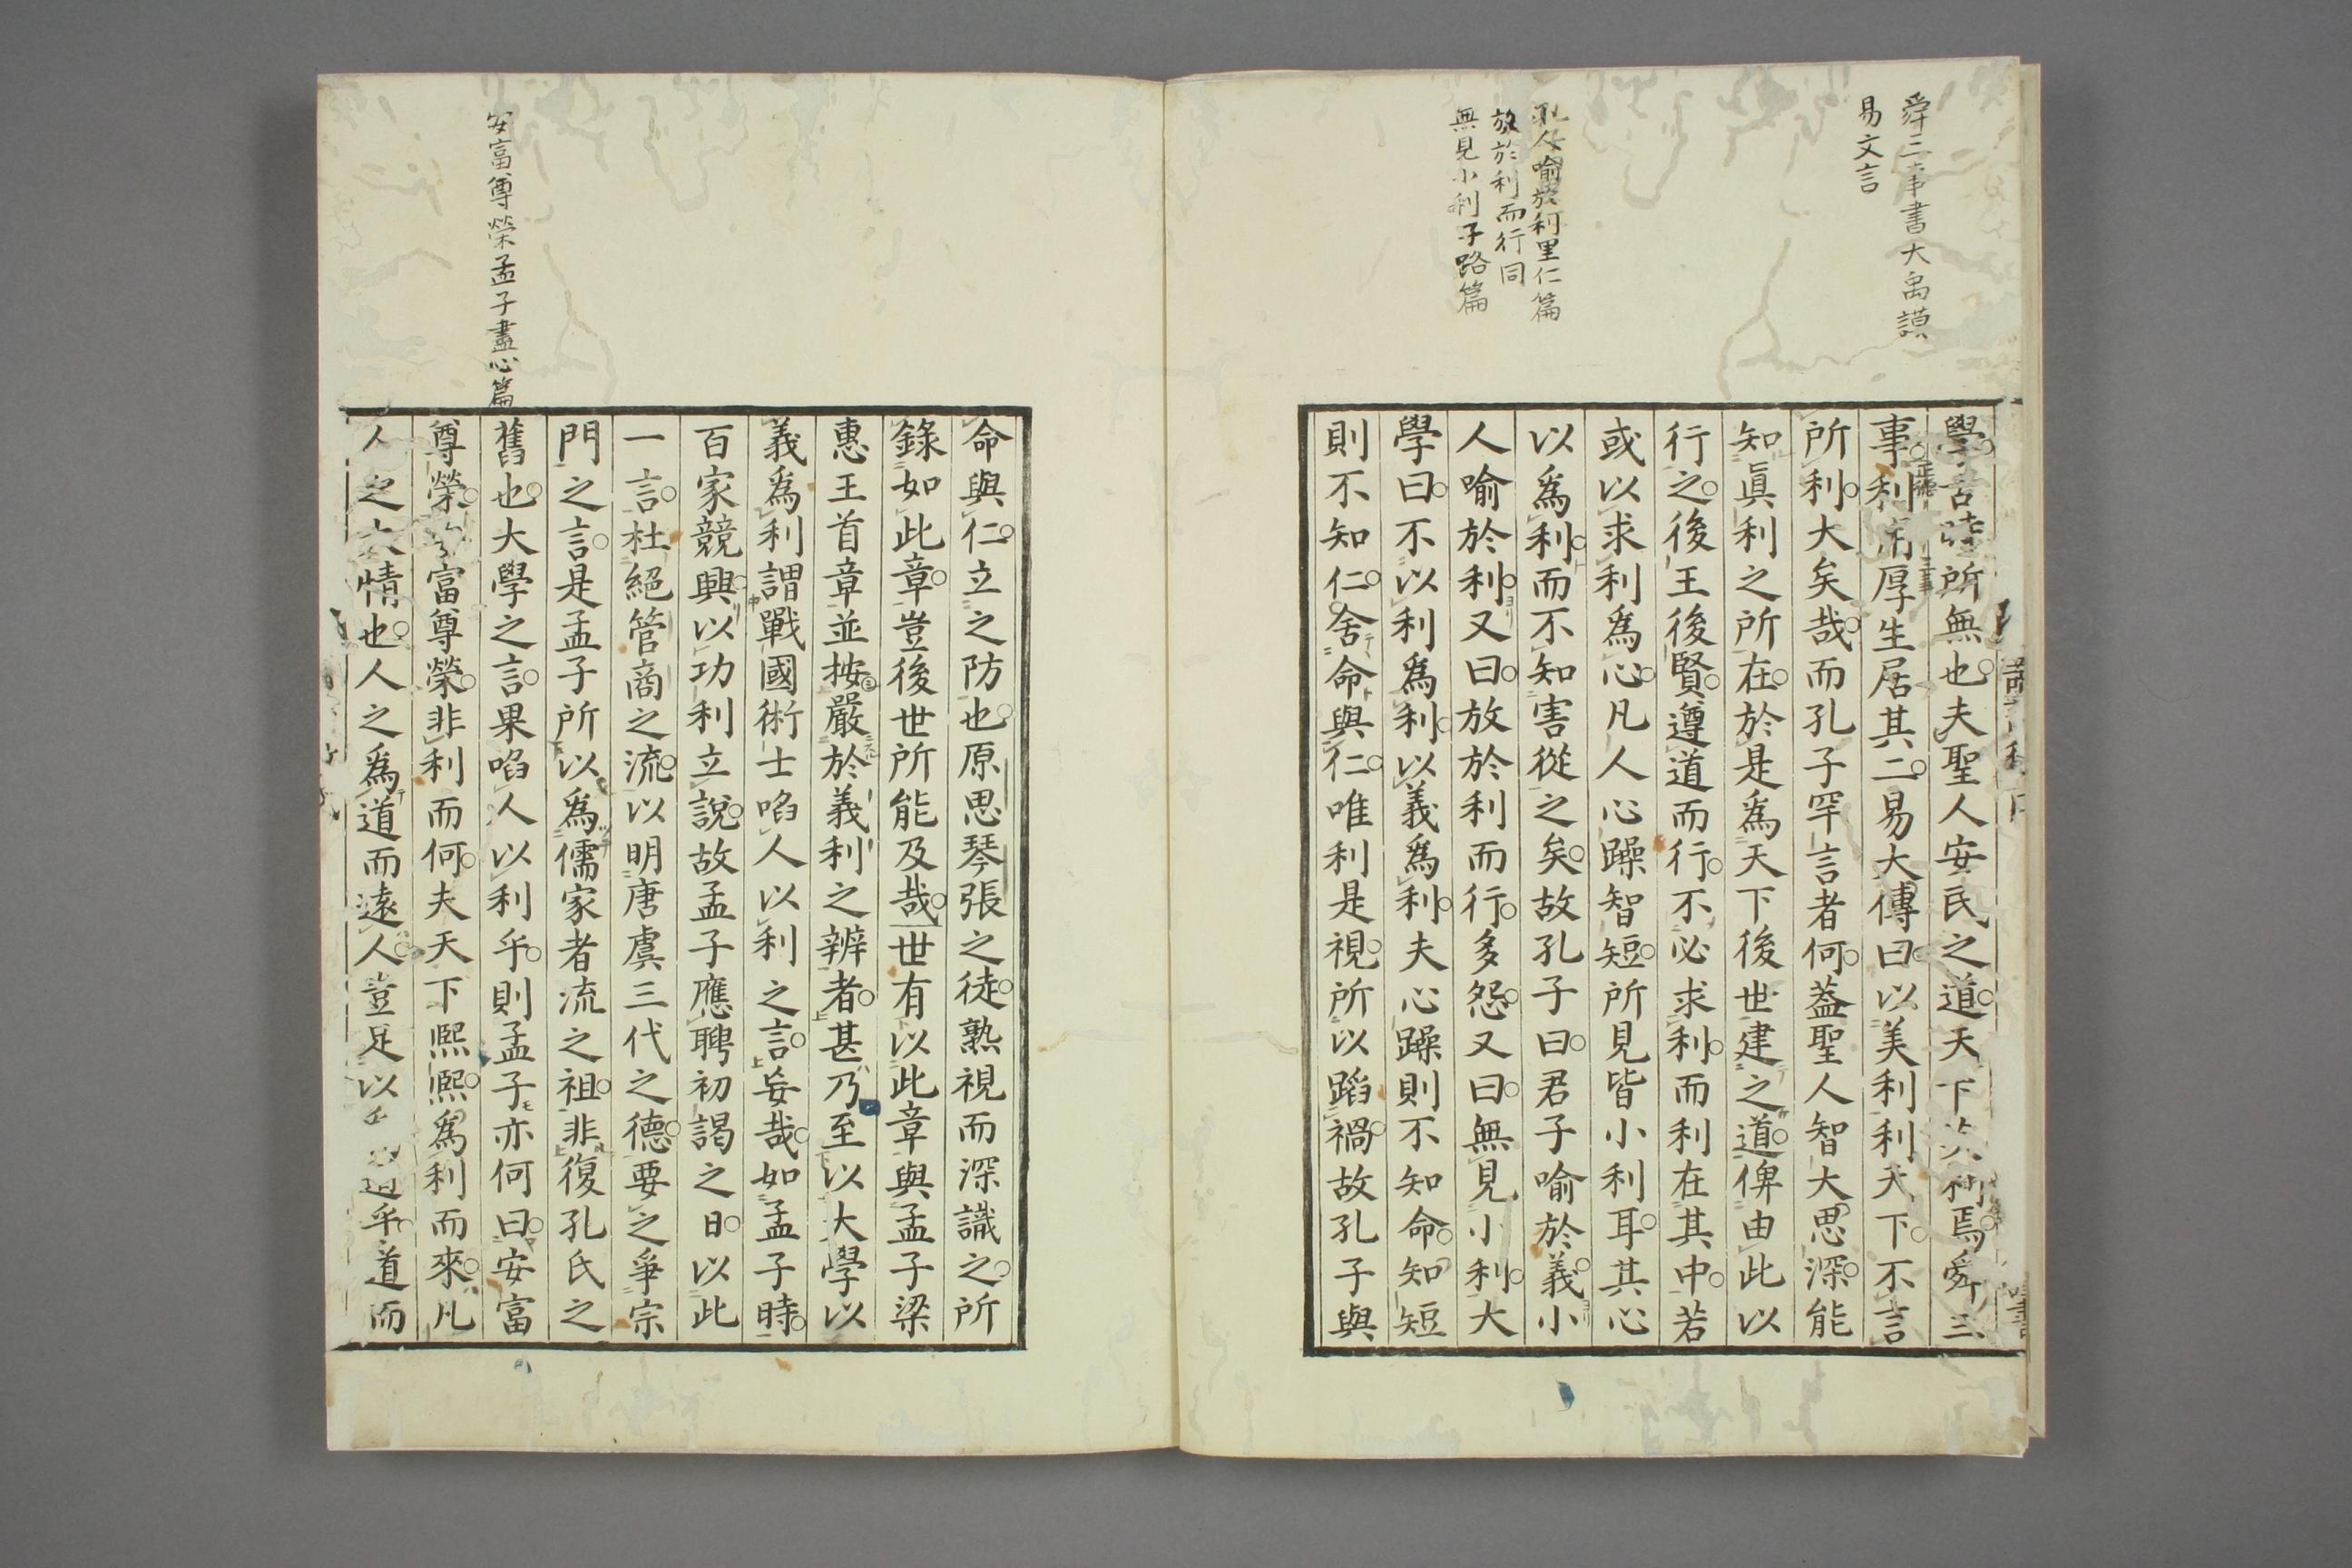 舜三事書大禹謨
易文言
孔人喻於利里仁篇
放於利而行同
無見小利子路篇
學者 所無也夫聖人安民之道天下 利焉舜三
事利用厚生居其二易大傳曰以美利利天下不言
所利大矣哉而孔子罕言者何葢聖人智大思深能
知眞利之所在於是爲天下後世建之道俾由此以
行之後王後賢遵道而行不必求利而利在其中若
或以求利爲心凡人心躁智短所見皆小利耳其心
以爲利而不知害從之矣故孔子曰君子喻於義小
人喻於利又曰放於利而行多怨又曰無見小利大
學曰不以利爲利以義爲利夫心躁則不知命知短
則不知仁舍命與仁唯利是視所以蹈禍故孔子與
命與仁立之防也原思琴張之徒熟視而深識之所
錄如此章豈後世所能及哉世有以此章與孟子梁
惠王首章並按嚴於義利之辨者甚乃至以大學以
義爲利謂戰國術士啗人以利之言妄哉如孟子時
百家競興以功利立說故孟子應聘初謁之日以此
一言杜絕管商之流以明唐虞三代之德要之爭宗
門之言是孟子所以爲儒家者流之祖非復孔氏之
舊也大學之言果啗人以利乎則孟子亦何曰安富
尊榮 富尊榮非利而何夫天下熙熙爲利而來凡
人之 情也人之爲道而遠人豈足以 道乎道而
安富尊榮孟子盡心篇